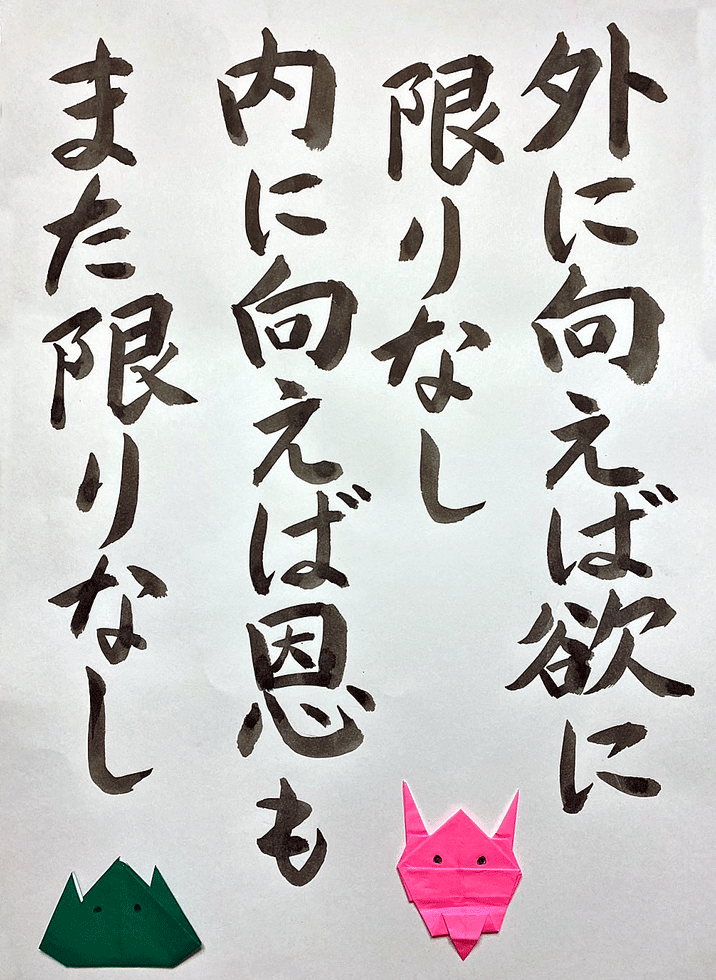 外に向えば欲に
限りなし
内に向えば恩も
また限りなし